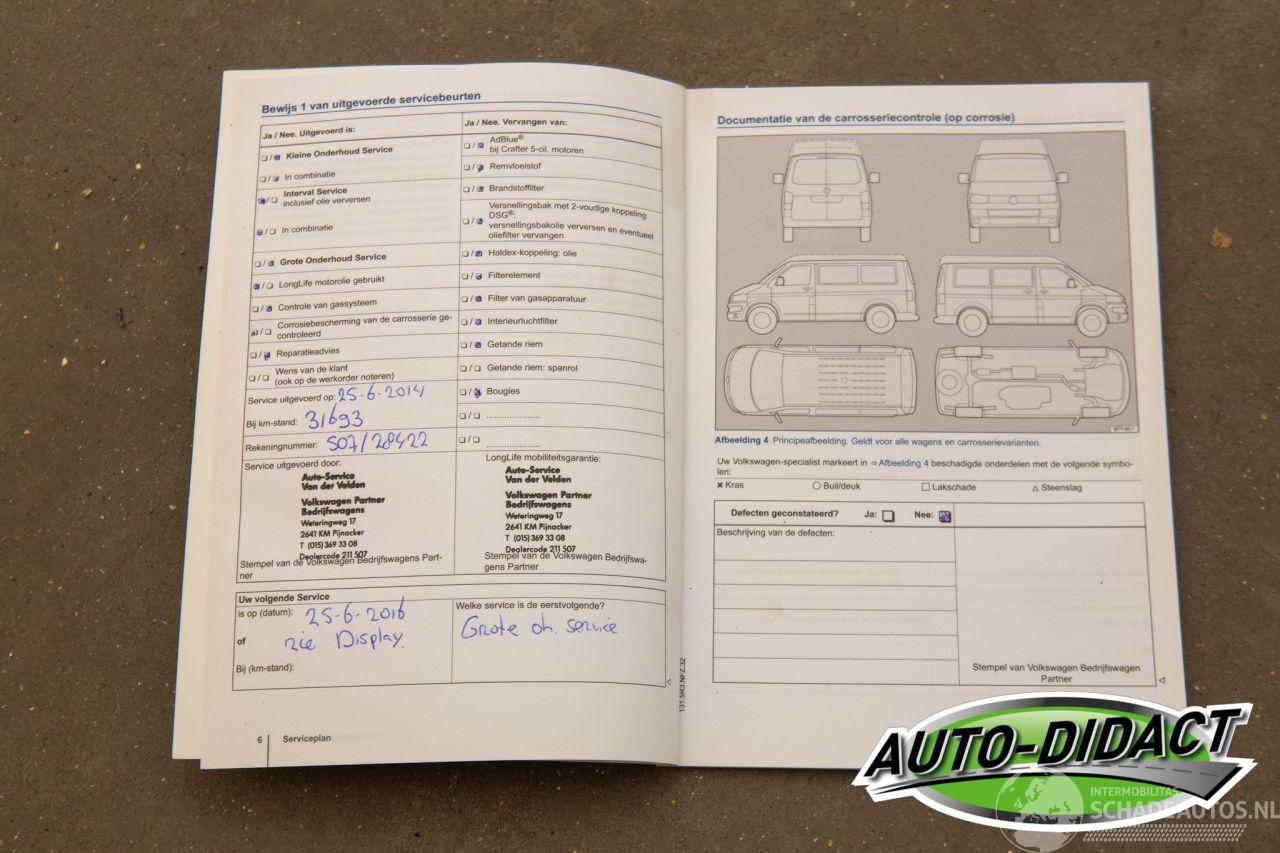 Bewijs 1 van uitgevoerde servicebeurten
Ja / Nee. Uitgevoerd is:
Kleine Onderhoud Service
In combinatie
Interval Service
inclusief olie verversen
In combinatie
Grote Onderhoud Service
LongLife motorolie gebruikt
Controle van gassysteem
Corrosiebescherming van de carrosserie ge-
controleerd
Reparatieadvies
Wens van de klant
(ook op de werkorder noteren)
Service uitgevoerd op: 25-6-2014
Bij km-stand: 31693
Rekeningnummer: S07/28422
Ja / Nee. Vervangen van:
AdBlue®
bij Crafter 5-cil. motoren
Remvloeistof
Brandstoffilter
Versnellingsbak met 2-voudige koppeling
DSG®:
versnellingsbakolie verversen en eventueel
oliefilter vervangen
Haldex-koppeling: olie
Filterelement
Filter van gasapparatuur
Interieurluchtfilter
Getande riem
Getande riem: spanrol
Bougies
Service uitgevoerd door:
Auto-Service
Van der Velden
Volkswagen Partner
Bedrijfswagens
Weteringweg 17
2641 KM Pijnacker
T (015) 369 33 08
Dealercode 211 507
Stempel van de Volkswagen Bedrijfswagens Part-
ner
LongLife mobiliteitsgarantie:
Auto-Service
Van der Velden
Volkswagen Partner
Bedrijfswagens
Weteringweg 17
2641 KM Pijnacker
T (015) 369 33 08
Dealercode 211 507
Stempel van de Volkswagen Bedrijfswa-
gens Partner
Uw volgende Service
is op (datum): 25-6-2016
of zie Display.
Bij (km-stand):
Welke service is de eerstvolgende?
Grote oh. service
6 Serviceplan
131.5R3.NFZ.32
Documentatie van de carrosseriecontrole (op corrosie)
Afbeelding 4 Principeafbeelding. Geldt voor alle wagens en carrosserievarianten.
Uw Volkswagen-specialist markeert in ⇒ Afbeelding 4 beschadigde onderdelen met de volgende symbo-
len:
Kras Buil/deuk Lakschade Steenslag
Defecten geconstateerd? Ja: Nee:
Beschrijving van de defecten:
Stempel van Volkswagen Bedrijfswagen
Partner
AUTO-DIDACT
INTERMOBILITAS
SCHADEAUTOS.NL